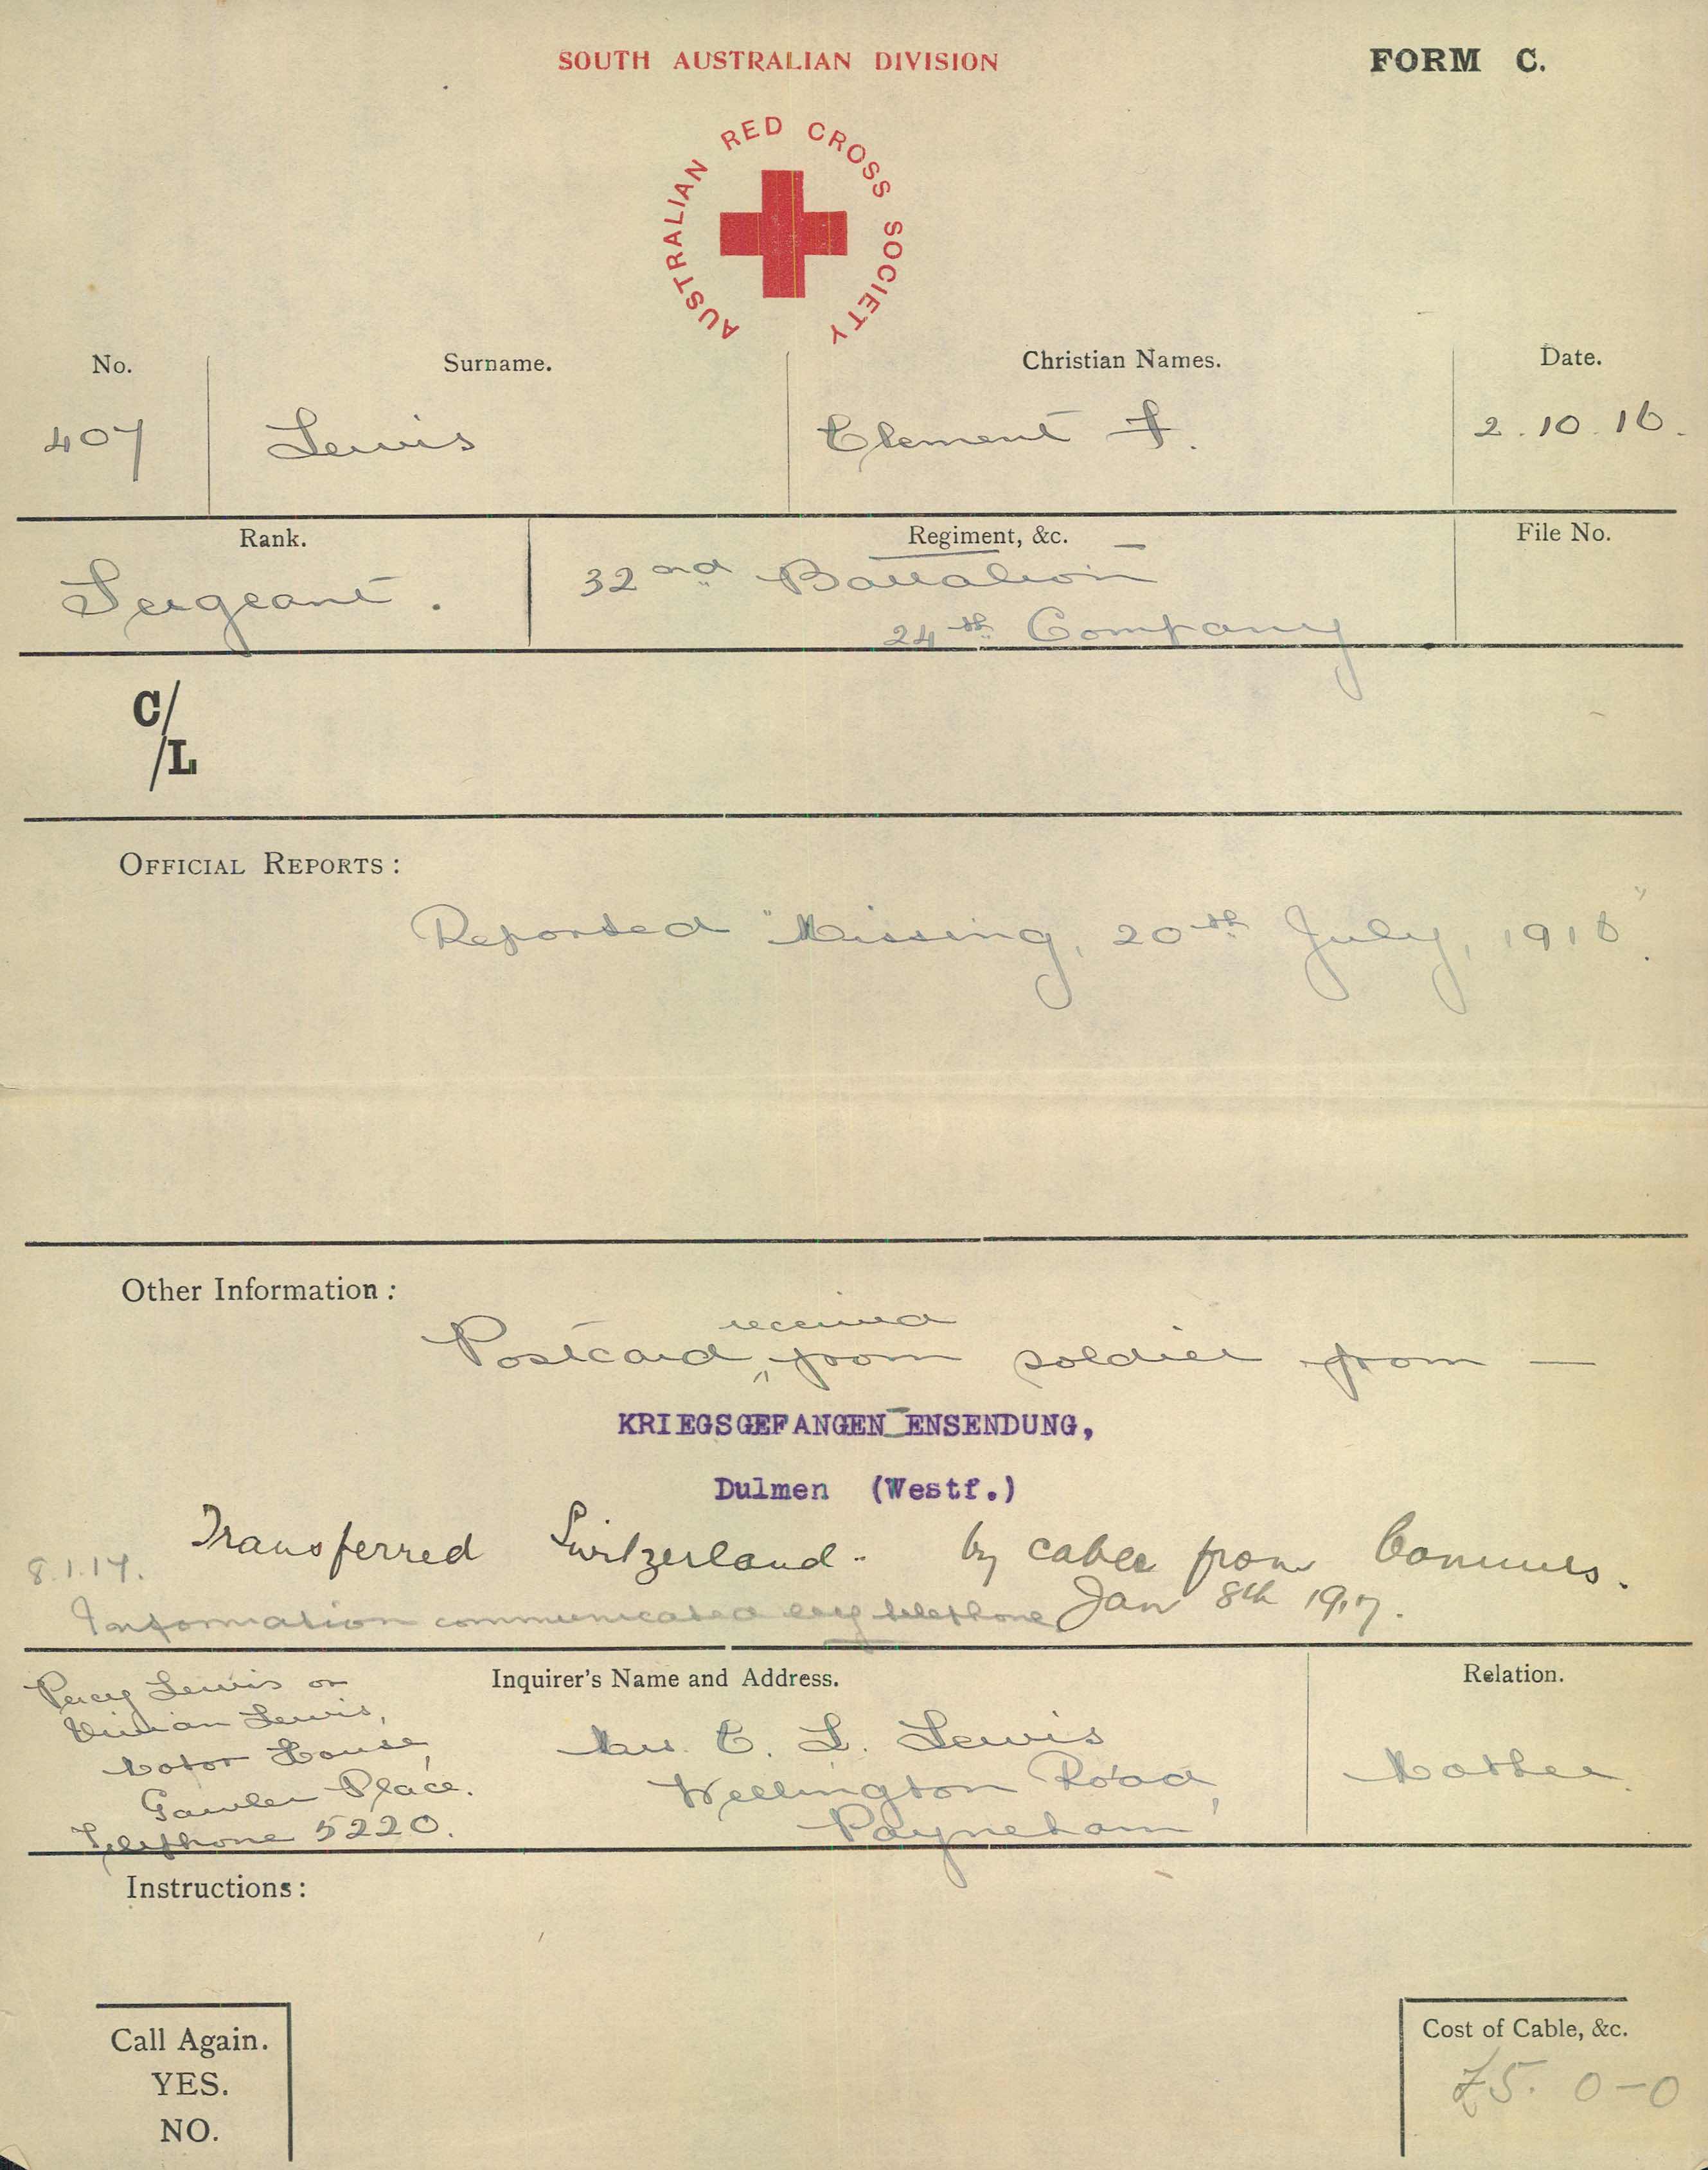 SOUTH AUSTRALIAN DIVISION
FORM C.
AUSTRALIAN RED CROSS SOCIETY
No. Surname. Christian Names. Date.
407 Lewis Clement F. 2.10.16.
Rank. Regiment, &c. File No.
Sergeant. 32nd Battalion
24th Company
C/
/L
OFFICIAL REPORTS:
Reported "Missing, 20th July, 1916".
Other Information:
received
Postcard from soldier from —
KRIEGSGEFANGEN ENSENDUNG,
Dulmen (Westf.)
Transferred Switzerland. by cable from Commrs.
8.1.17.
Jan 8th 1917.
Information communicated by telephone
Inquirer's Name and Address. Relation.
Percy Lewis or
Vivian Lewis,
Motor House,
Gawler Place.
Telephone 5220.
Mrs. C. L. Lewis
Wellington Road,
Payneham
Mother.
Instructions:
Call Again.
YES.
NO.
Cost of Cable, &c.
£5. 0-0